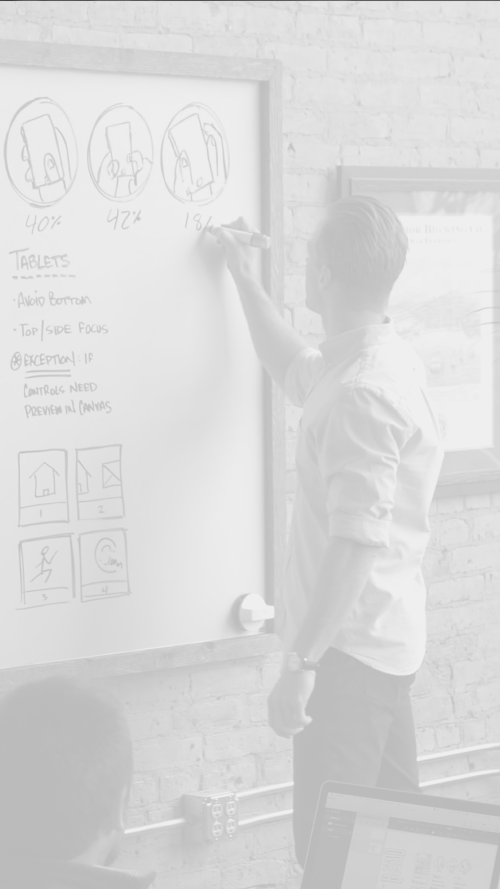 40% 42% 18%
TABLETS
· AVOID BOTTOM
· TOP/SIDE FOCUS
EXCEPTION IF
CONTROLS NEED
PREVIEW IN CANVAS
1 2
3 4